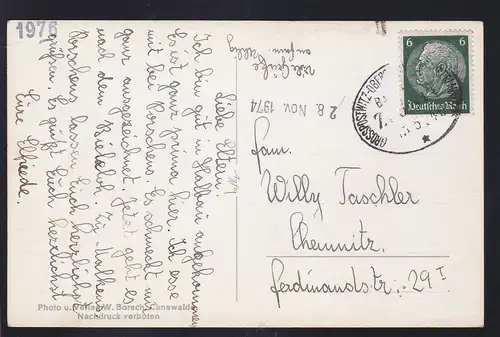 1976
Liebe Eltern.
Ich bin gut in Halbau angekommen.
Es ist ganz prima hier. Ich esse
mit bei Porschens. Es schmeckt mir
ganz ausgezeichnet. Jetzt geht es
nach dem Bieleboh zu. Malkens
Porschens lassen Euch herzlichst
grüßen. Es grüßt Euch herzlichst
Eure Elfriede.
Viele Grüße
an Fam.
28. Nov. 1974
6 6
Deutsches Reich
GROSSPOSTWITZ-OBER
Willy Taschler
Chemnitz.
Ferdinandstr. 29 I
Photo u. Verlag W. Borsch, Cunewalde
Nachdruck verboten